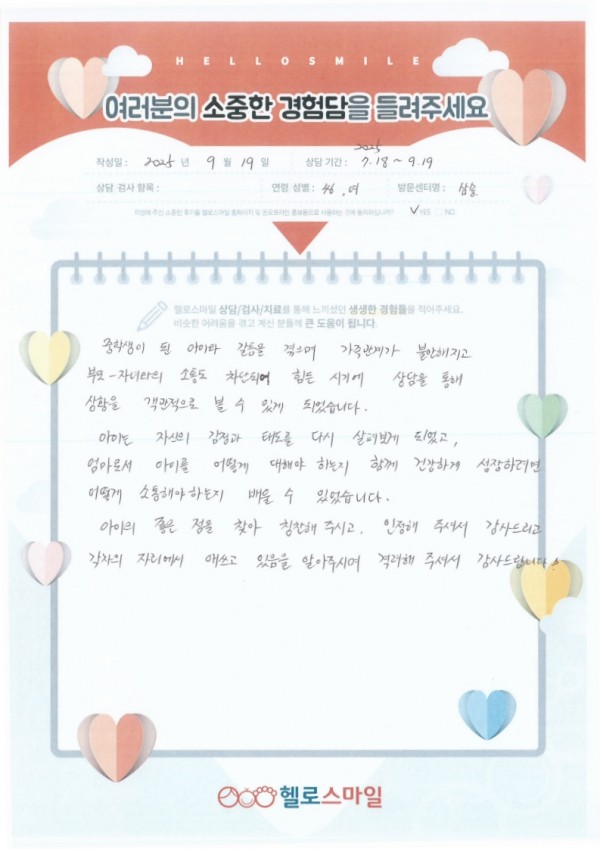 HELLOSMILE
여러분의 소중한 경험담을 들려주세요
작성일 : 2025 년 9 월 19 일 상담 기간 : 2025 7.18 ~ 9.19
상담 검사 항목 : 연령 성별 : 46 . 여 방문센터명 : 삼송
작성해 주신 소중한 후기를 헬로스마일 홈페이지 및 온오프라인 홍보용으로 사용하는 것에 동의하십니까? ✓ YES NO
헬로스마일 상담/검사/치료를 통해 느끼셨던 생생한 경험들을 적어주세요.
비슷한 어려움을 겪고 계신 분들께 큰 도움이 됩니다.
중학생이 된 아이와 갈등을 겪으며 가족관계가 불안해지고
부모-자녀와의 소통도 차단되어 힘든 시기에 상담을 통해
상황을 객관적으로 볼 수 있게 되었습니다.
아이는 자신의 감정과 태도를 다시 살펴보게 되었고,
엄마로서 아이를 어떻게 대해야 하는지 함께 건강하게 성장하려면
어떻게 소통해야하는지 배울 수 있었습니다.
아이의 좋은 점을 찾아 칭찬해 주시고, 인정해 주셔서 감사드리고
각자의 자리에서 애쓰고 있음을 알아주시며 격려해 주셔서 감사드립니다!
헬로스마일